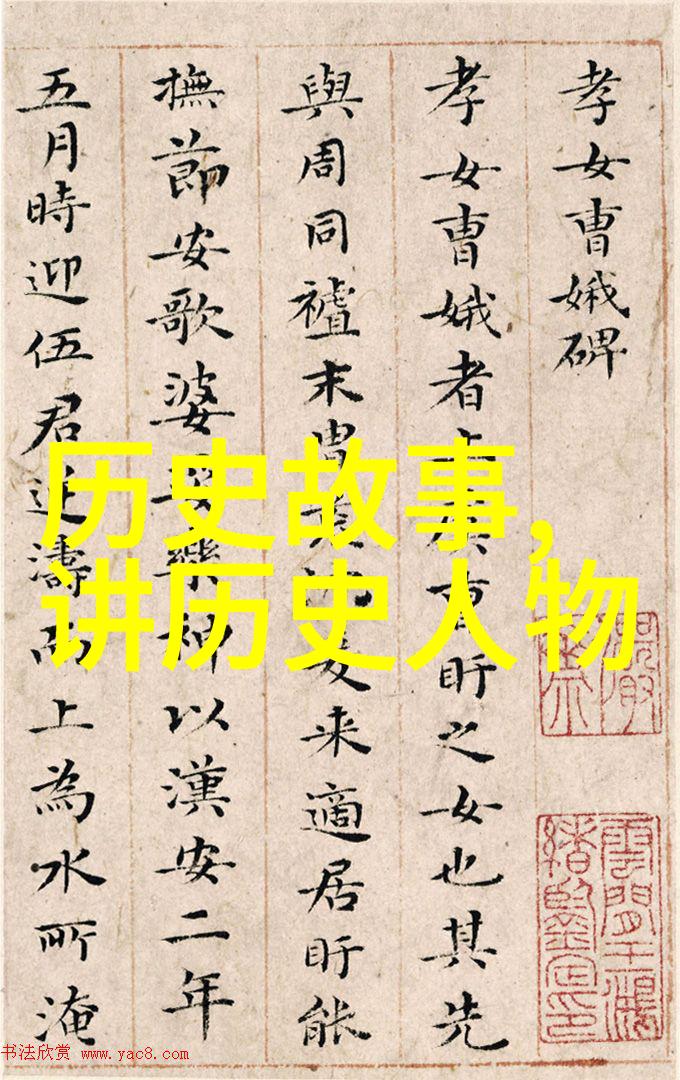 孝女曹娥碑
孝女曹娥者上虞曹盱之女也其先
與周同末胄荒爰来適居盱能
撫節安歌婆娑樂神以漢安二年
五月時迎伍君逆濤而上為水所淹
历史故事,
讲历史人物
书法欣赏 www.yac8.com